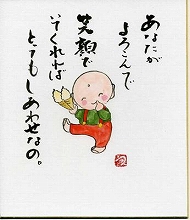 あなたが
よろこんで
笑顔で
いてくれれば
とってもしあわせなの。